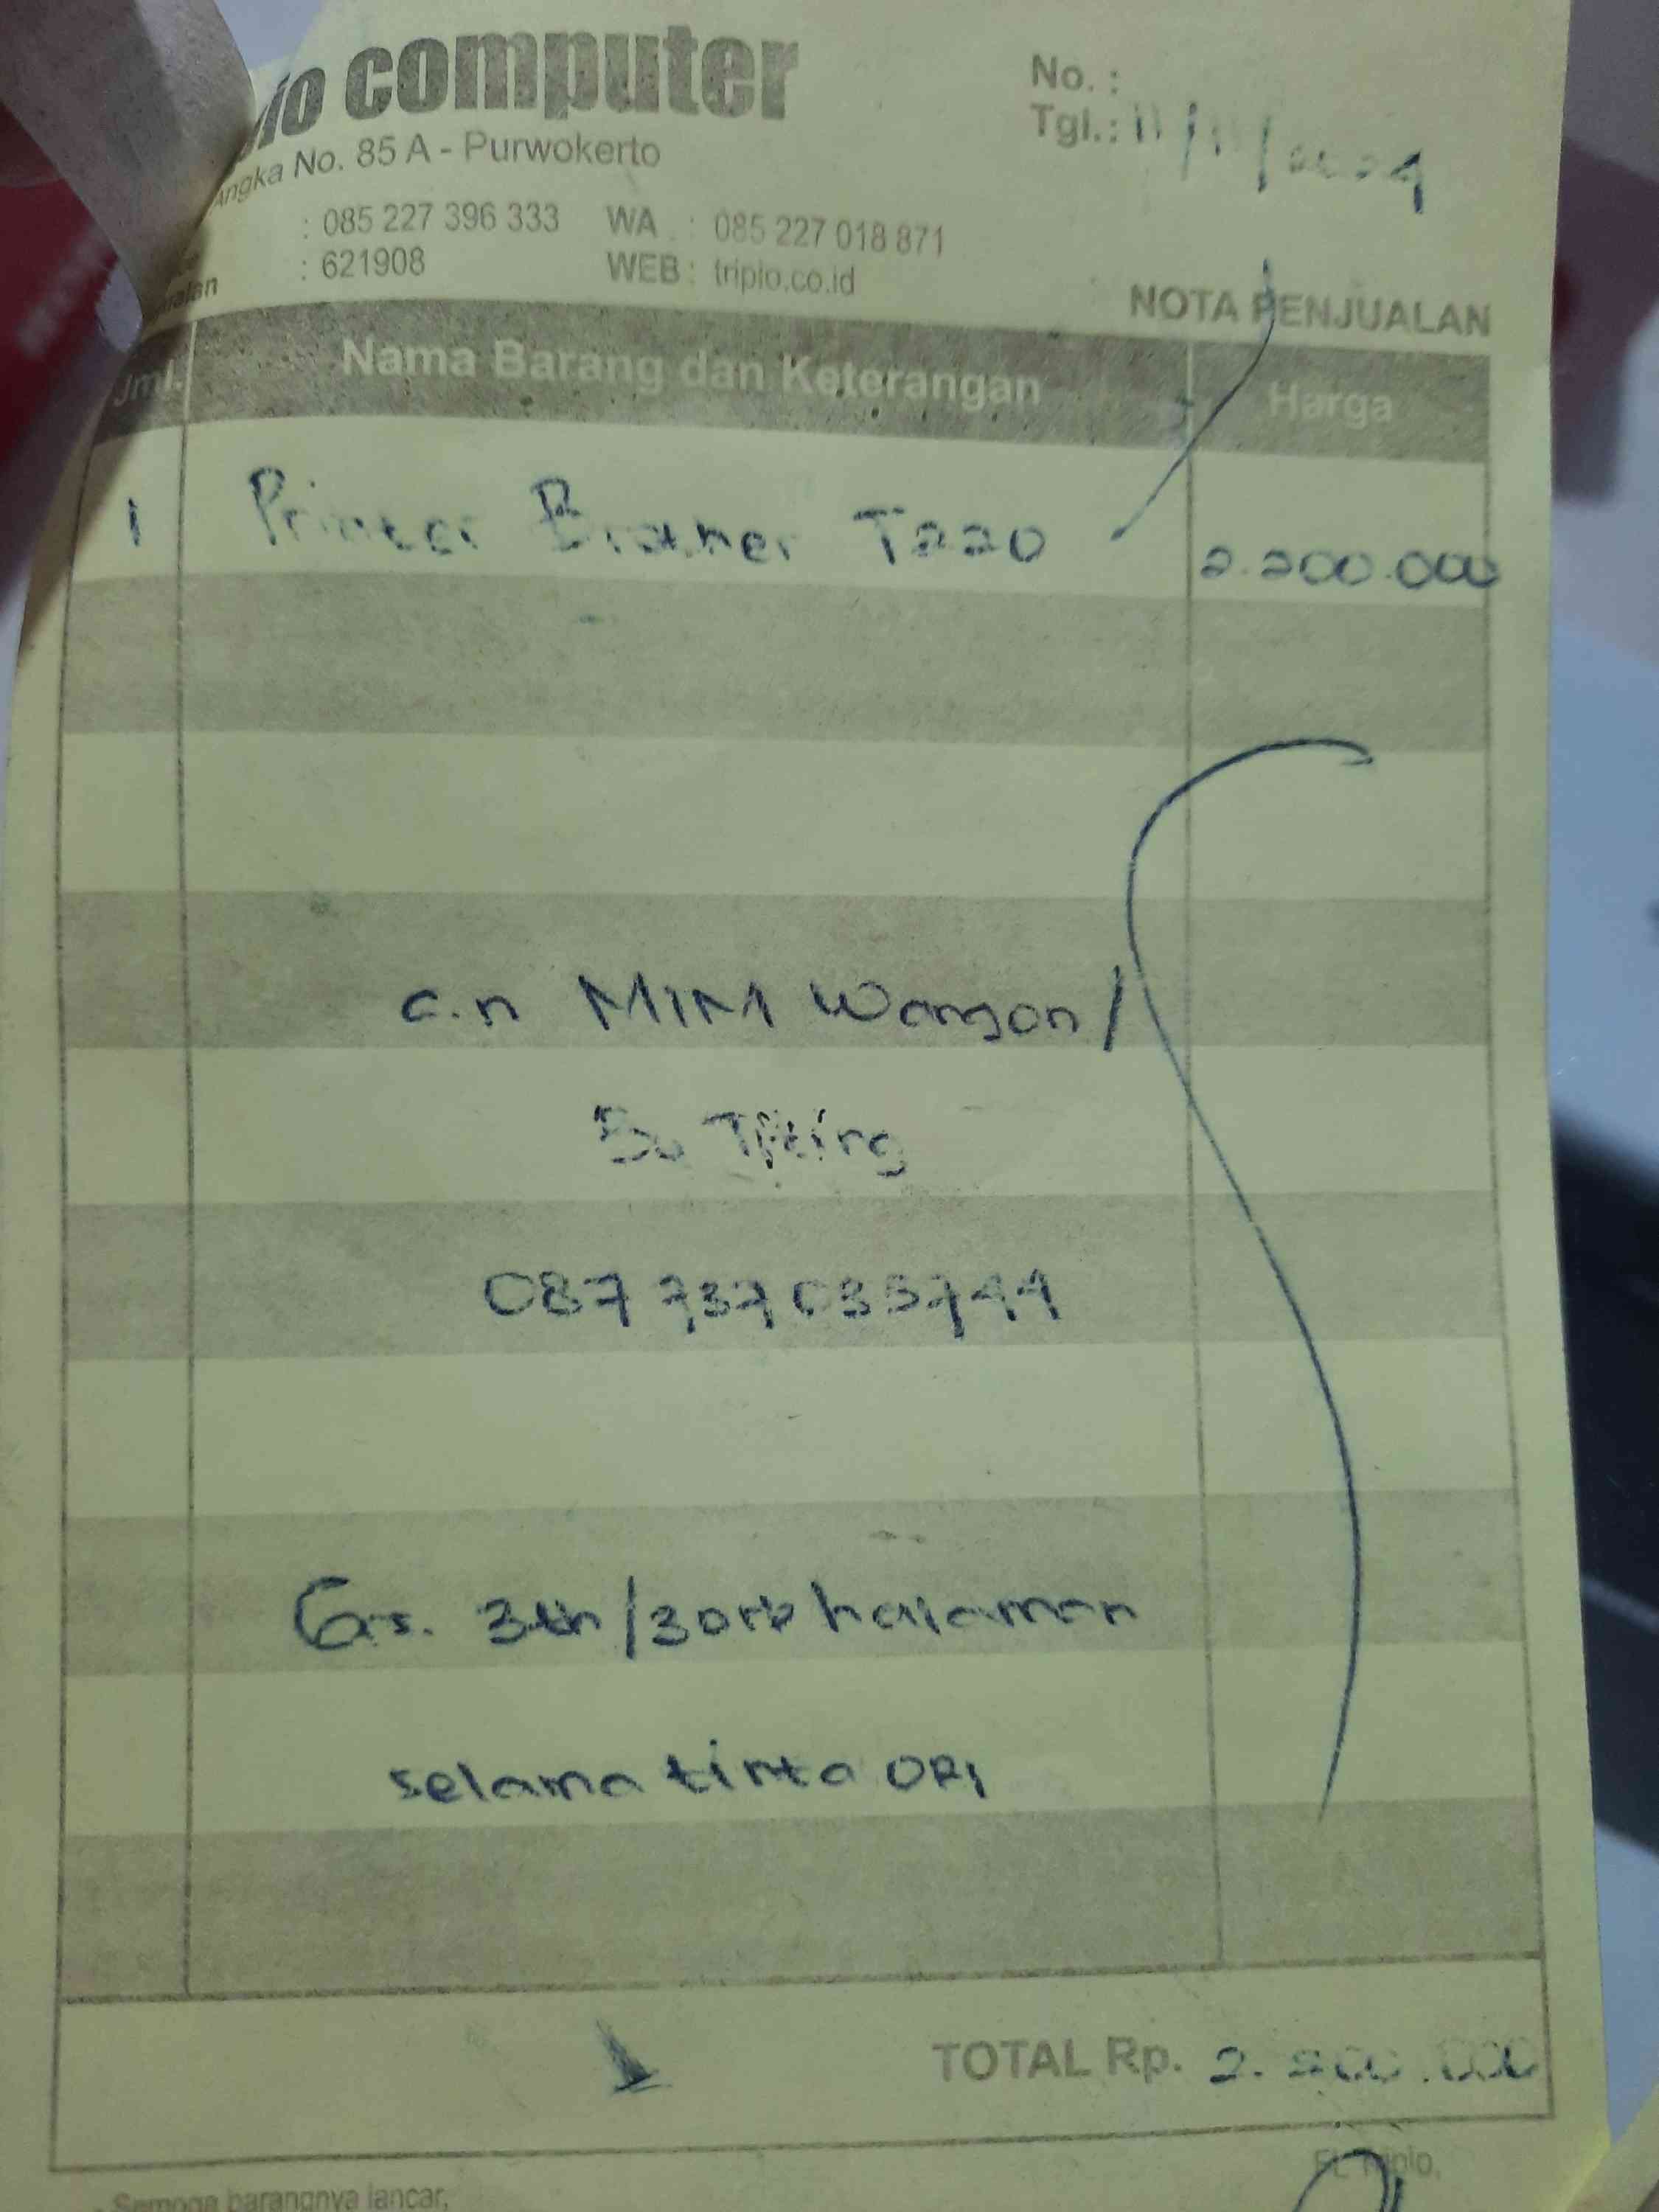 computer
No. :
Tgl.: 11/11/2024
Angka No. 85 A - Purwokerto
: 085 227 396 333 WA : 085 227 018 871
: 621908 WEB : triplo.co.id
NOTA PENJUALAN
Jml. Nama Barang dan Keterangan Harga
1 Printer Brother T220 2.200.000
a.n MIM Wangon /
Bu
087 737 035744
Gr. 3th/30rb halaman
selama tinta ORI
TOTAL Rp. 2.200.000
- Semoga barangnya lancar,